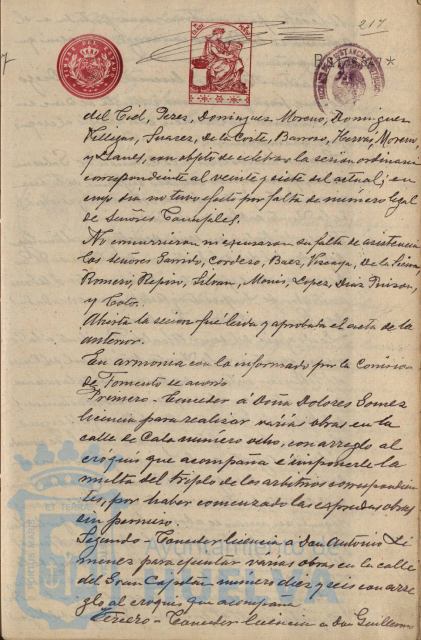 217
del Cid, Perez, Dominguez Moreno, Dominguez
Villegas, Suarez, De la Corte, Barroso, Hervas, Moreno,
y Llanes, con objeto de celebrar la sesión ordinaria
correspondiente al veinte y siete del actual, en
cuyo dia no tuvo efecto por falta de número legal
de Señores Concejales.
No concurrieron ni escusaron su falta de asistencia
los señores Garrido, Cordero, Baez, Vizcaya, De la Sierra,
Romero, Repiso, Silvan, Monis, Lopez, Diaz
y Coto.
Abierta la sesion fue leida y aprobada el acta de la
anterior.
En armonia con lo informado por la Comision
de Fomento se acordó
Primero - Conceder á Doña Dolores Gomez
licencia para realizar varias obras en la
calle de Cala numero ocho, con arreglo al
cróquis que acompaña é imponerle la
multa del triplo de los arbitrios correspondien
tes, por haber comenzado las espresadas obras
sin permiso.
Segundo - Conceder licencia á Don Antonio Ji
menez para ejecutar varias obras en la calle
del Gran Capitán numero diez y seis con arre
glo al croquis que acompaña
Tercero - Conceder licencia a Don Guillermo
Ayuntamiento de
HUELVA